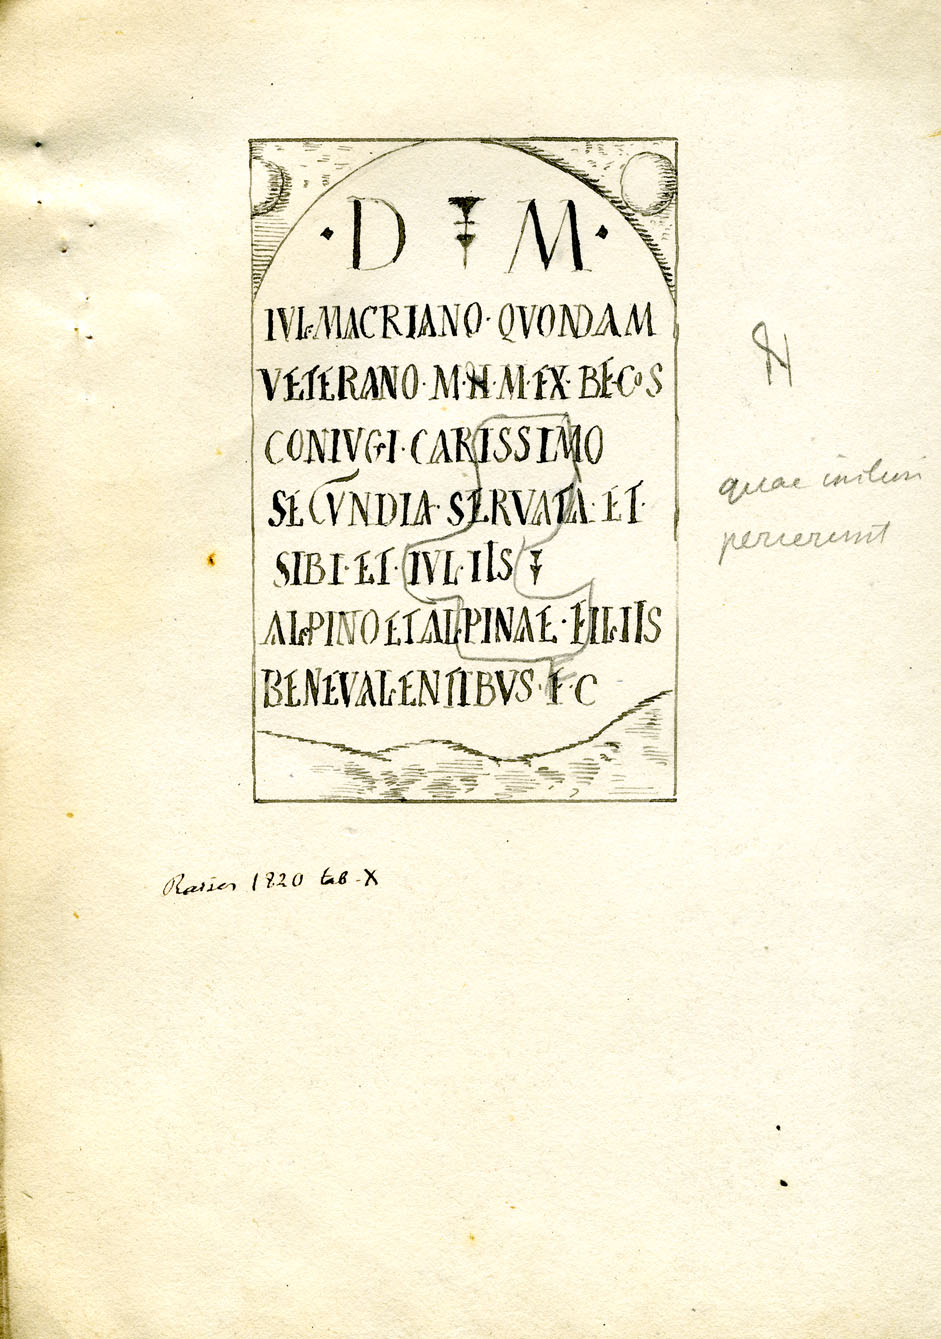 · D M ·
IVL·MACRIANO· QVONDAM
VETERANO·M·H·M·EX·BE·COS
CONIVGI·CARISSIMO
SECVNDIA·SERVATA·ET·
SIBI·ET·IVL·IIS
ALPINO ET ALPINAE·FILIIS
BENEVALENTIBVS·F·C
quae
perierunt
Raiser 1820 tab. X